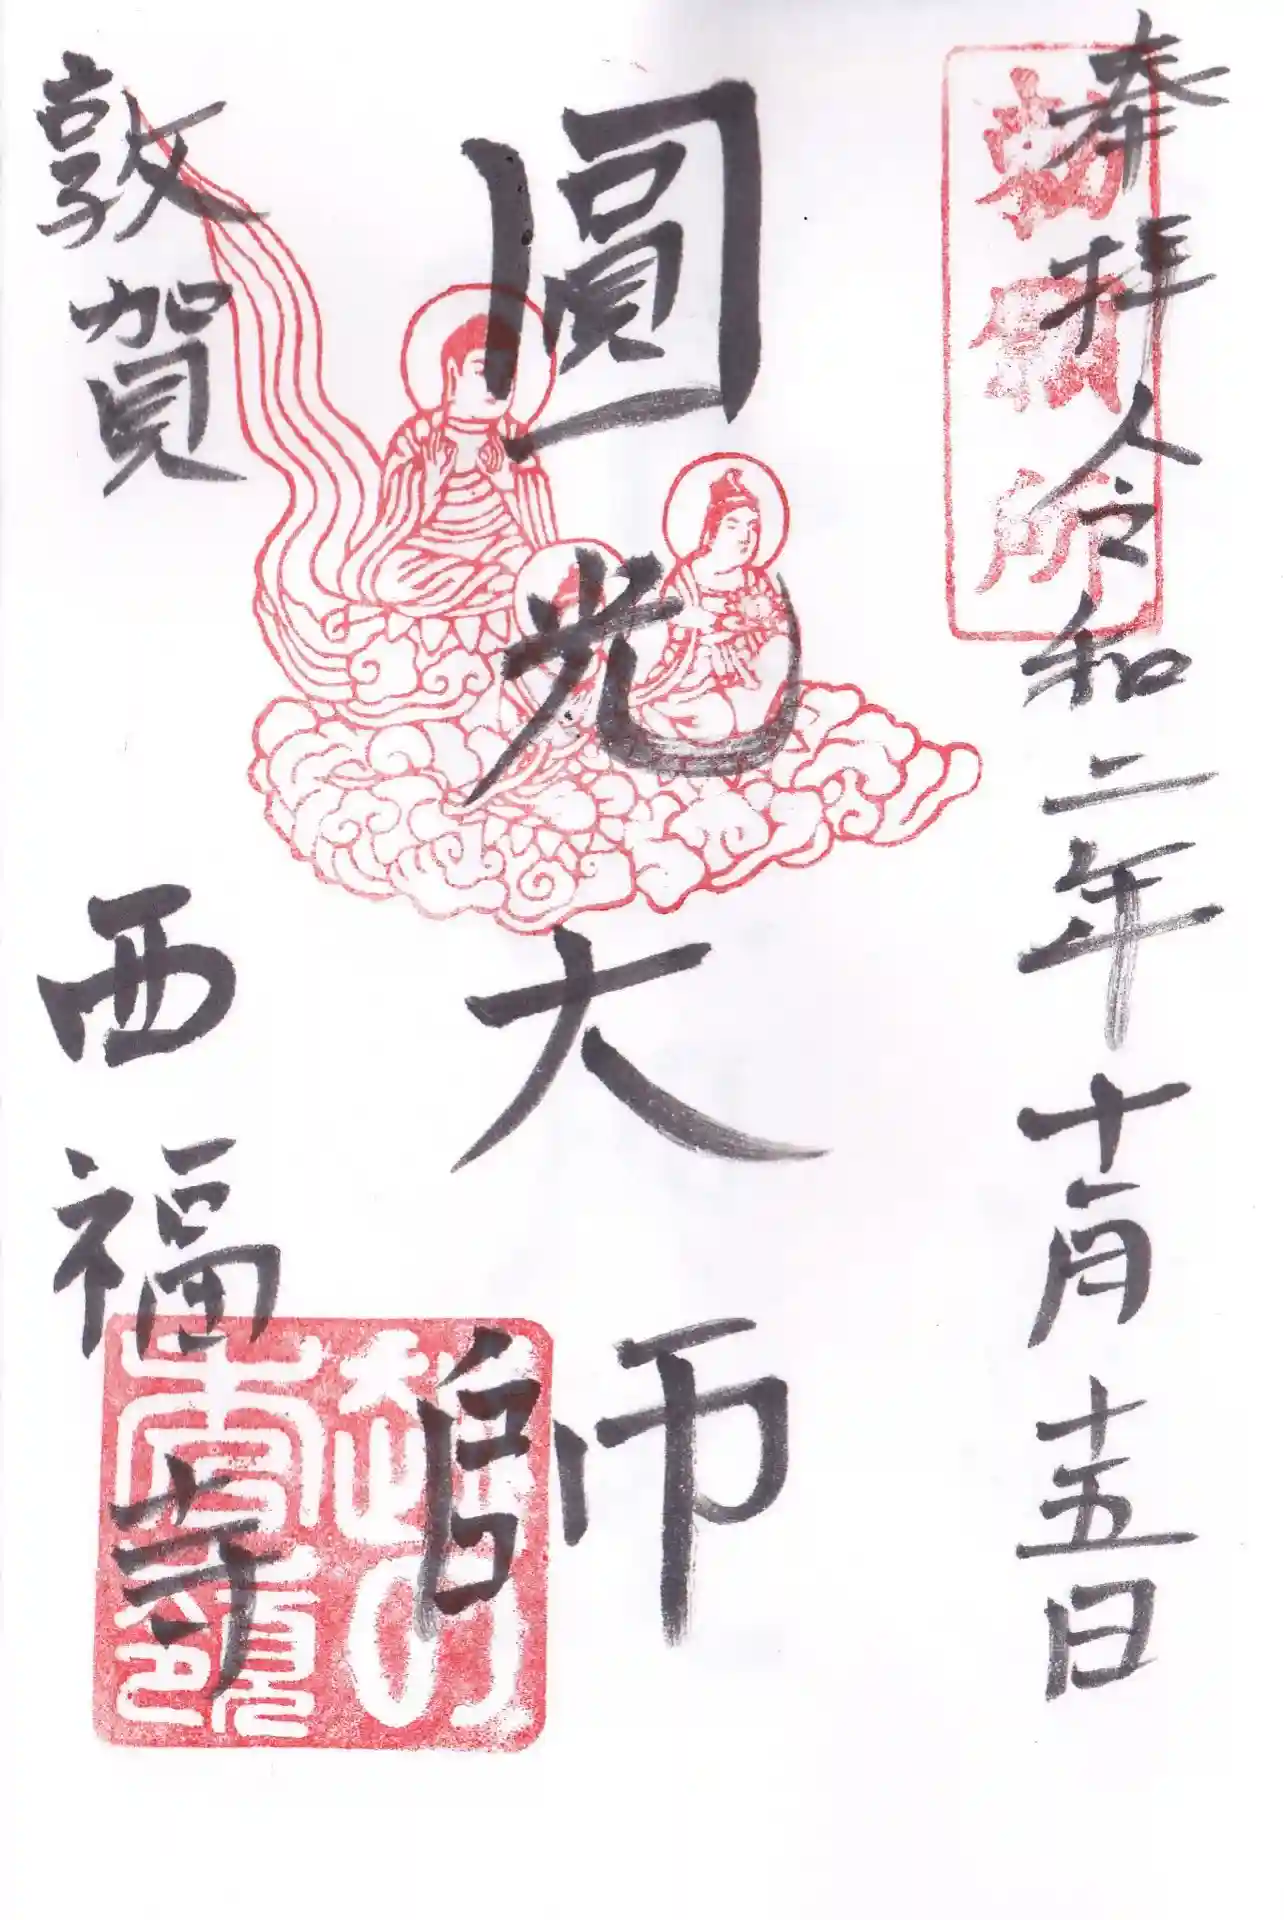 奉拝 令和二年十月十五日
圓光大師
敦賀 西福寺
勅願所